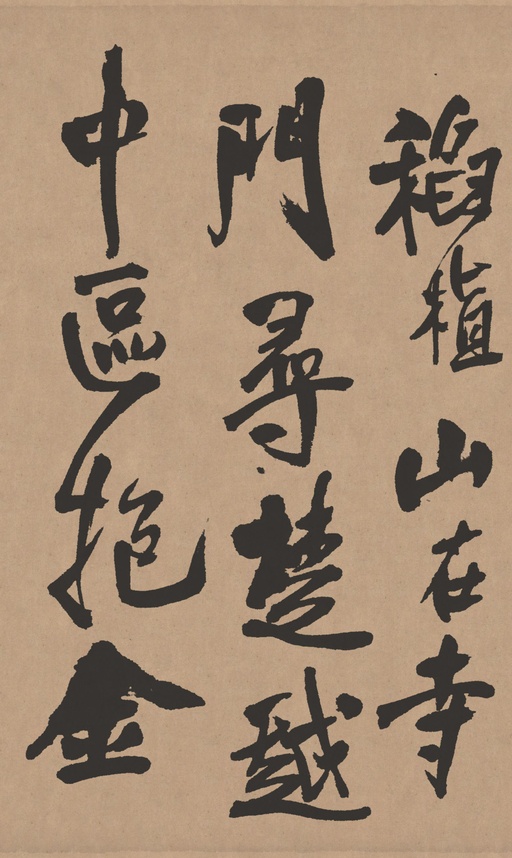 稻植山在寺
門尋楚越
中區抱金